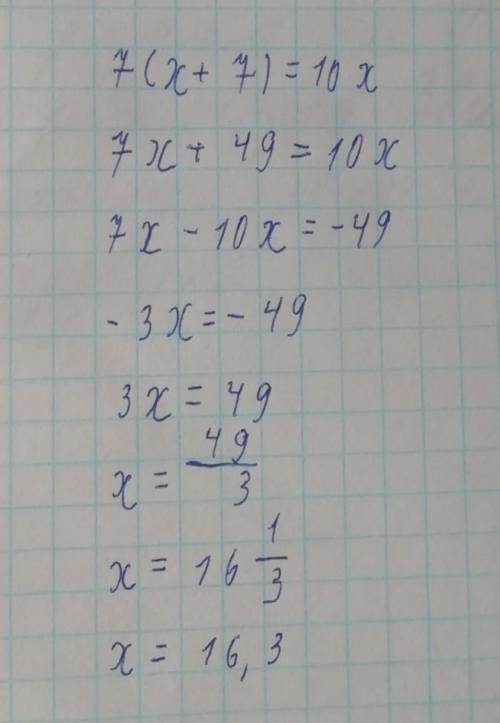 7(x+ 7)=10x
7x+ 49=10x
7x - 10x=-49
- 3x=- 49
3x= 49
x= 49/3
x= 16 1/3
x= 16,3